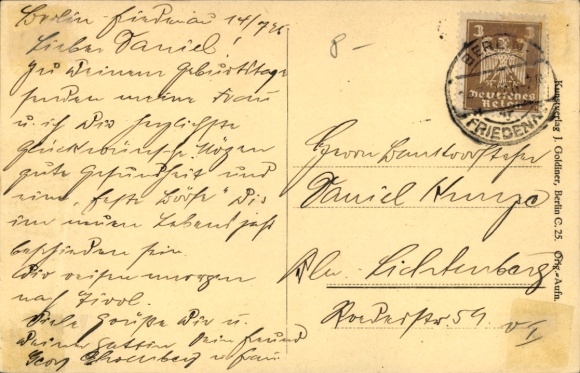 Berlin-Friedenau 14/7 26
Lieber Daniel!
Zu Deinem Geburtstage
senden meine Frau
u. ich Dir herzlichste
Glückwünsche. Mögen
gute Gesundheit und
eine "feste Börse" Dir
im neuen Lebensjahr
beschieden sein.
Wir reisen morgen
nach Tirol.
Viele Grüße Dir u.
Deiner Gattin Dein Freund
Georg u. Frau.
8-
3 3
Deutsches
Reich
BERLIN
FRIEDENAU
Herrn Bankvorsteher
Daniel Kunze
Bln. Lichtenberg
Roederstr. 59
v I
Kunstverlag J. Goldiner, Berlin C. 25. Orig.-Aufn.